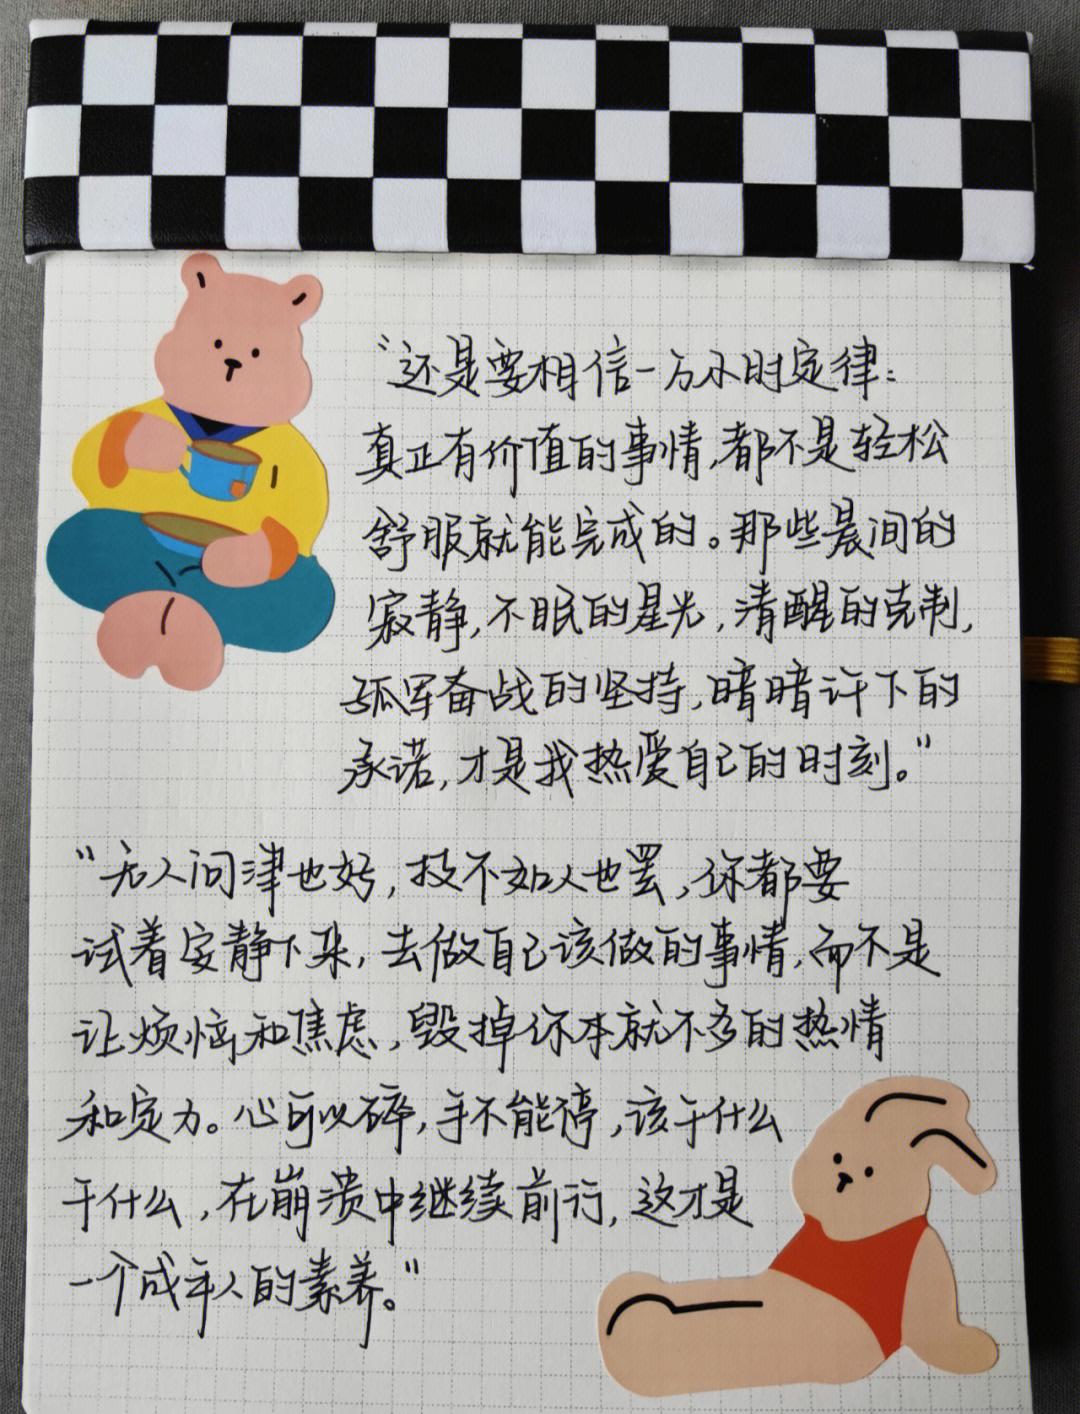 “还是要相信一万小时定律:
真正有价值的事情,都不是轻松
舒服就能完成的。那些晨间的
寂静,不眠的星光,清醒的克制,
孤军奋战的坚持,暗暗许下的
承诺,才是我热爱自己的时刻。”
“无人问津也好,技不如人也罢,你都要
试着安静下来,去做自己该做的事情,而不是
让烦恼和焦虑,毁掉你本就不多的热情
和定力。心可以碎,手不能停,该干什么
干什么,在崩溃中继续前行,这才是
一个成年人的素养。”